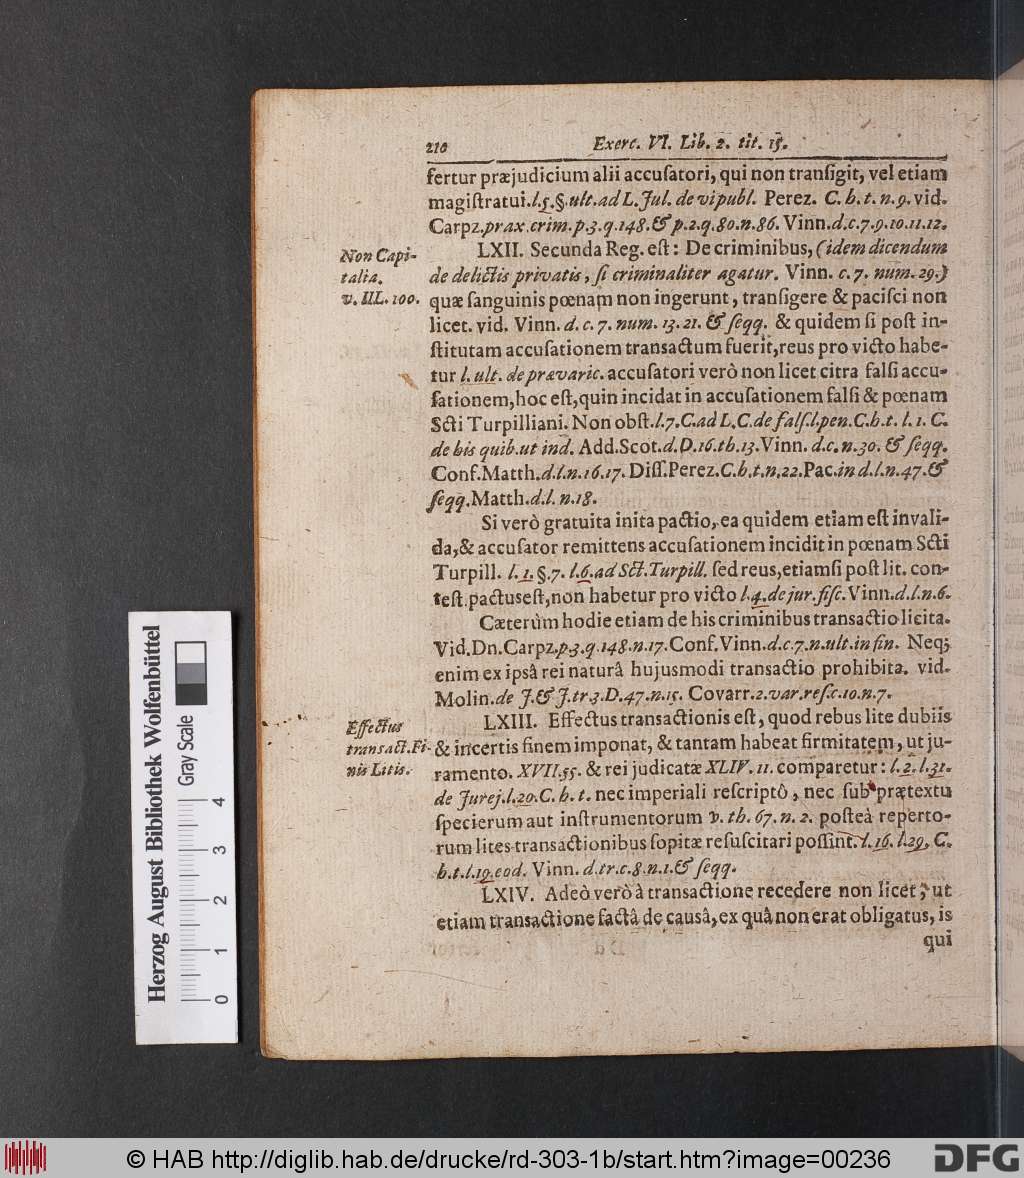 210 Exerc. VI. Lib. 2. tit. 15.
fertur præjudicium alii accuſatori, qui non tranſigit, vel etiam
magiſtratui. l. 5. §. ult. ad L. Jul. de vi publ. Perez. C. h. t. n. 9. vid.
Carpz. prax. crim. p. 3. q. 148. & p. 2. q. 80. n. 86. Vinn. d. c. 7. 9. 10. 11. 12.
Non Capi-
talia.
v. IIL. 100.
LXII. Secunda Reg. eſt: De criminibus, (idem dicendum
de delictis privatis, ſi criminaliter agatur. Vinn. c. 7. num. 29.)
quæ ſanguinis pœnam non ingerunt, tranſigere & paciſci non
licet. vid. Vinn. d. c. 7. num. 13. 21. & ſeqq. & quidem ſi poſt in-
ſtitutam accuſationem transactum fuerit, reus pro victo habe-
tur l. ult. de prævaric. accuſatori verò non licet citra falſi accu-
ſationem, hoc eſt, quin incidat in accuſationem falſi & pœnam
Scti Turpilliani. Non obſt. l. 7. C. ad L. C. de falſ. l. pen. C. h. t. l. 1. C.
de his quib. ut ind. Add. Scot. d. D. 16. th. 13. Vinn. d. c. n. 30. & ſeqq.
Conf. Matth. d. l. n. 16. 17. Diſſ. Perez. C. h. t. n. 22. Pac. in d. l. n. 47. &
ſeqq. Matth. d. l. n. 18.
Si verò gratuita inita pactio, ea quidem etiam eſt invali-
da, & accuſator remittens accuſationem incidit in pœnam Scti
Turpill. l. 1. §. 7. l. 6. ad Sct. Turpill. ſed reus, etiamſi poſt lit. con-
teſt. pactus eſt, non habetur pro victo l. 4. de jur. fiſc. Vinn. d. l. n. 6.
Cæterùm hodie etiam de his criminibus transactio licita.
Vid. Dn. Carpz. p. 3. q. 148. n. 17. Conf. Vinn. d. c. 7. n. ult. in fin. Neq;
enim ex ipsâ rei naturâ hujusmodi transactio prohibita. vid.
Molin. de J. & J. tr. 3. D. 47. n. 15. Covarr. 2. var. reſ. c. 10. n. 7.
Effectus
transact. Fi-
nis Litis.
LXIII. Effectus transactionis eſt, quod rebus lite dubiis
& incertis finem imponat, & tantam habeat firmitatem, ut ju-
ramento. XVII. 55. & rei judicatæ XLIV. 11. comparetur: l. 2. l. 31.
de Jurej. l. 20. C. h. t. nec imperiali reſcriptô, nec ſub prætextu
ſpecierum aut inſtrumentorum v. th. 67. n. 2. poſteà reperto-
rum lites transactionibus ſopitæ reſuſcitari poſſint. l. 16. l. 29. C.
h. t. l. 19. eod. Vinn. d. tr. c. 8. n. 1. & ſeqq.
LXIV. Adeò verò à transactione recedere non licet, ut
etiam transactione factâ de causâ, ex quâ non erat obligatus, is
qui
Herzog August Bibliothek Wolfenbüttel
Gray Scale
0 1 2 3 4
© HAB http://diglib.hab.de/drucke/rd-303-1b/start.htm?image=00236
DFG